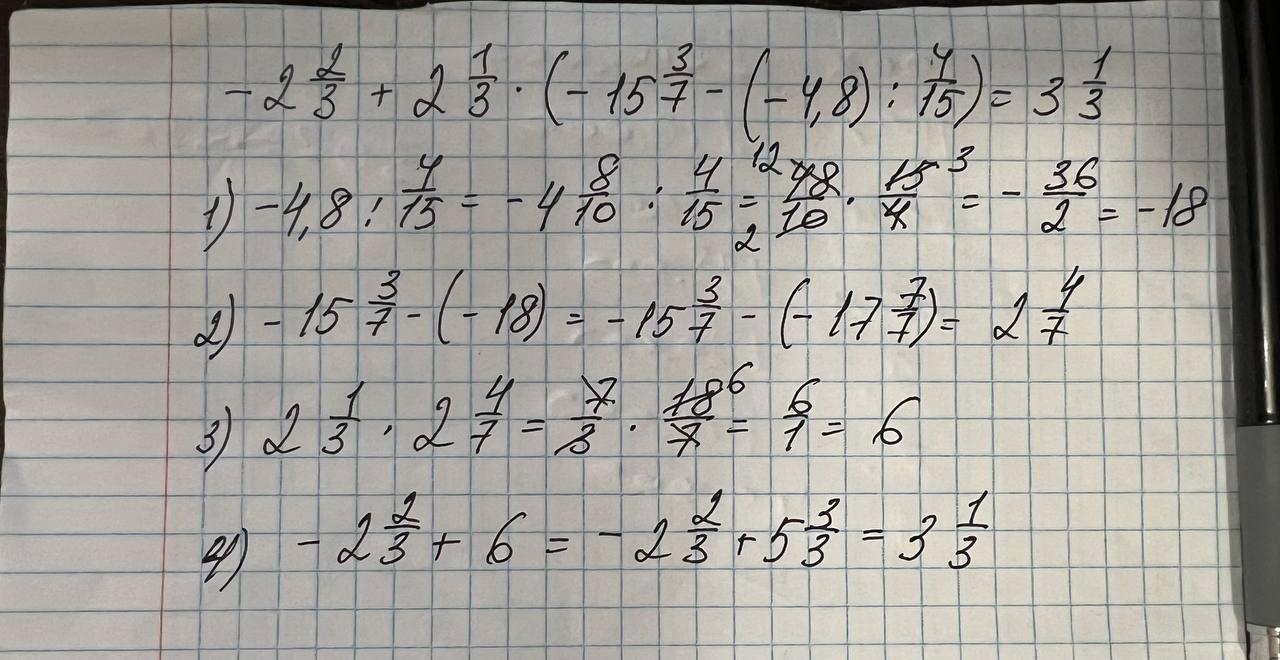 -2 2/3 + 2 1/3 · (-15 3/7 - (-4,8) : 4/15) = 3 1/3
1) -4,8 : 4/15 = -4 8/10 : 4/15 = 12 48/10 2 · 15/4 3 = - 36/2 = -18
2) -15 3/7 - (-18) = -15 3/7 - (-17 7/7) = 2 4/7
3) 2 1/3 · 2 4/7 = 7/3 · 18/7 6 = 6/1 = 6
4) -2 2/3 + 6 = -2 2/3 + 5 3/3 = 3 1/3